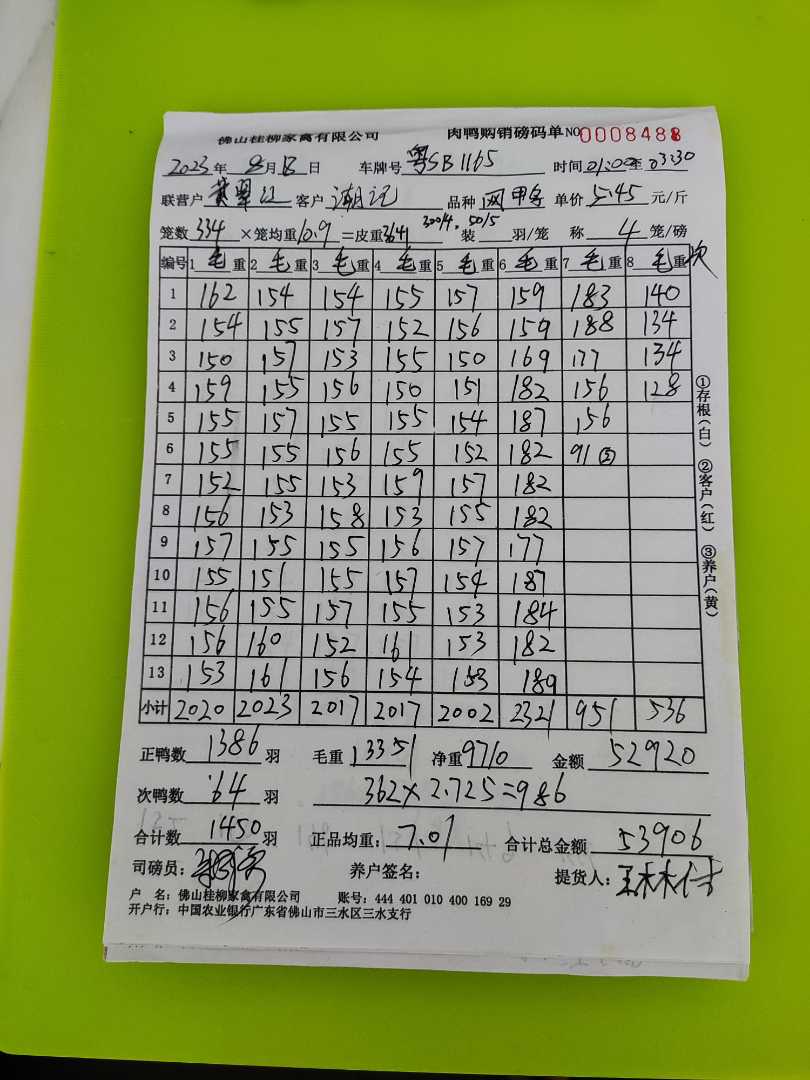 佛山桂柳家禽有限公司 肉鸭购销磅码单 NO 0008488
2023年8月13日 车牌号 粤SB1165 时间 01:00至03:30
联营户 黄翠江 客户 潮记 品种 单价 5.45 元/斤
笼数 334 ×笼均重 10.9 =皮重 3641 300/4, 50/5 装 羽/笼 称 4 笼/磅
编号 1 毛重 2 毛重 3 毛重 4 毛重 5 毛重 6 毛重 7 毛重 8 毛重 次
1 162 154 154 155 157 159 183 140
2 154 155 157 152 156 159 188 134
3 150 157 153 155 150 169 177 134
4 159 155 156 150 151 182 156 128
5 155 157 155 155 154 187 156
6 155 155 156 155 152 182 91 ②
7 152 155 153 159 157 182
8 156 153 158 153 155 182
9 157 155 155 156 157 177
10 155 151 155 157 154 187
11 156 155 157 155 153 184
12 156 160 152 161 153 182
13 153 161 156 154 153 189
小计 2020 2023 2017 2017 2002 2321 951 536
正鸭数 1386 羽 毛重 13351 净重 9710 金额 52920
次鸭数 64 羽 362×2.725=986
合计数 1450 羽 正品均重: 7.01 合计总金额 53906
司磅员: 养户签名: 提货人:
户 名: 佛山桂柳家禽有限公司 账号: 444 401 010 400 169 29
开户行: 中国农业银行广东省佛山市三水区三水支行
①存根(白) ②客户(红) ③养户(黄)